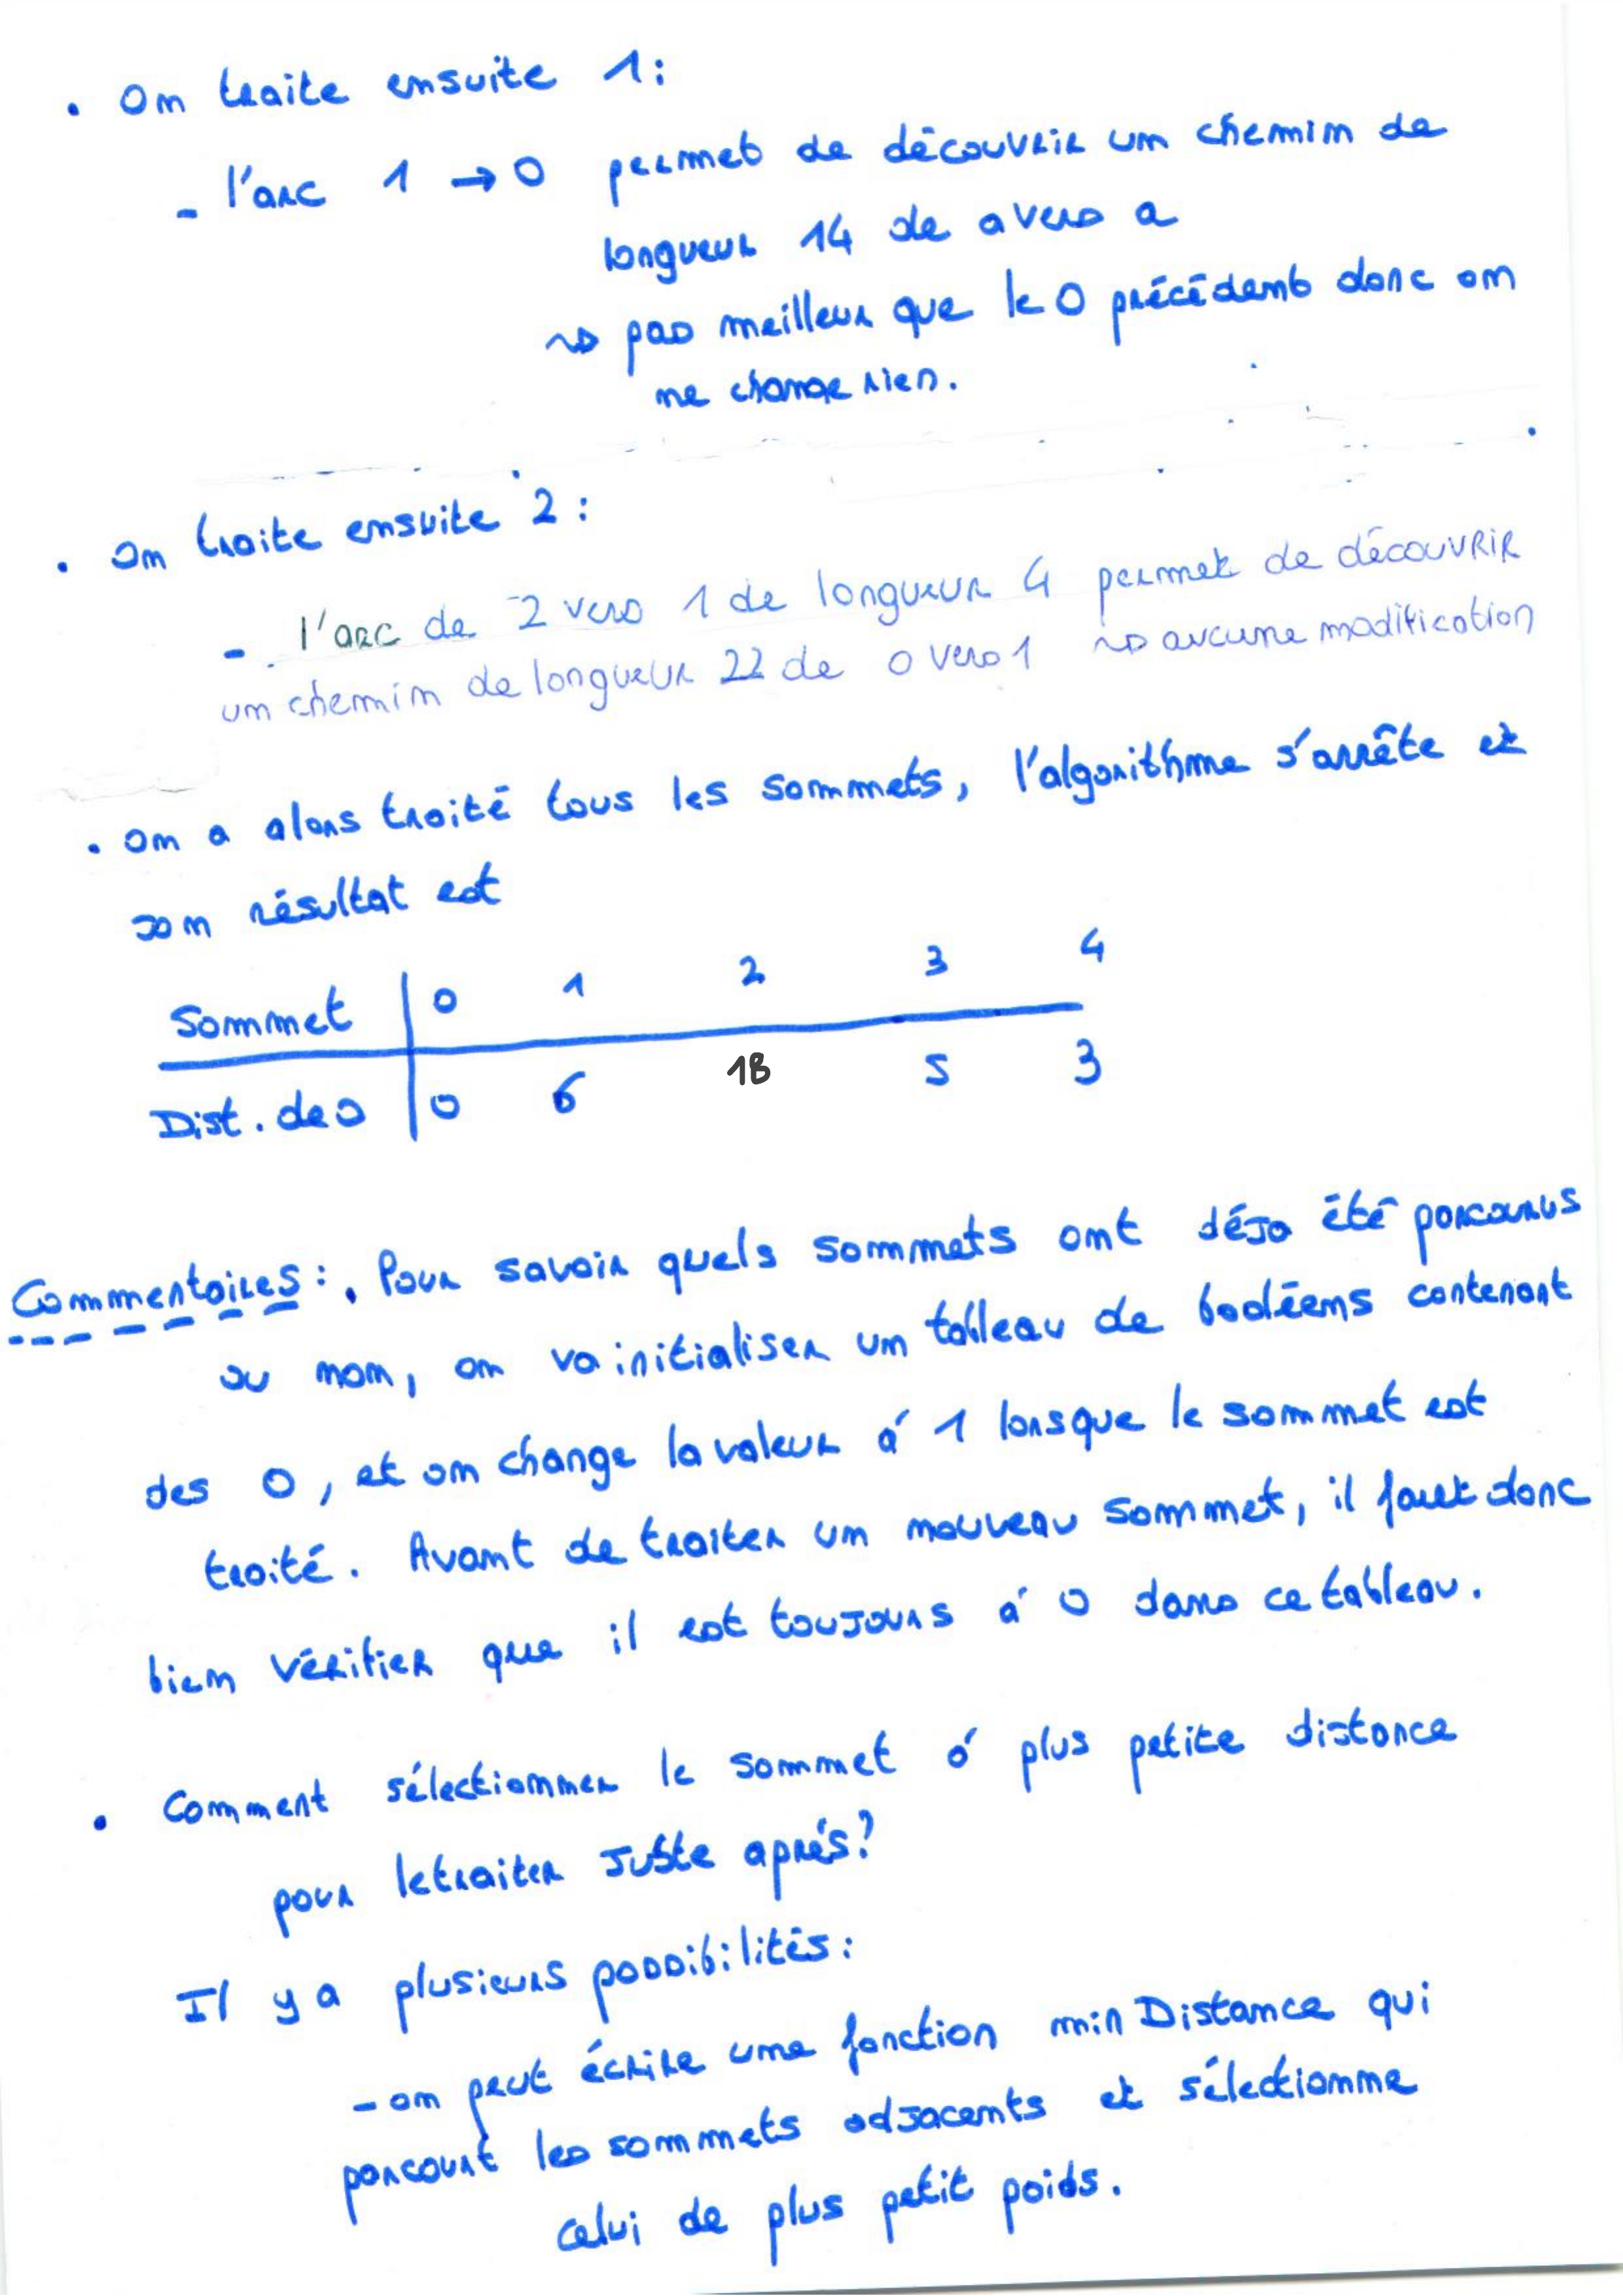 . On traite ensuite 1 :
- l'arc 1 → 0 permet de découvrir un chemin de
longueur 14 de a vers a
↝ pas meilleur que le 0 précédent donc on
ne change rien.
. On traite ensuite 2 :
- l'arc de 2 vers 1 de longueur 4 permet de découvrir
un chemin de longueur 22 de 0 vers 1 ↝ aucune modification
. On a alors traité tous les sommets, l'algorithme s'arrête et
son résultat est
Sommet | 0 1 2 3 4
Dist. de 0 | 0 6 18 5 3
Commentaires : . Pour savoir quels sommets ont déjà été parcourus
ou non, on va initialiser un tableau de booléens contenant
des 0, et on change la valeur à 1 lorsque le sommet est
traité. Avant de traiter un nouveau sommet, il faut donc
bien vérifier que il est toujours à 0 dans ce tableau.
. Comment sélectionner le sommet à plus petite distance
pour le traiter juste après ?
Il y a plusieurs possibilités :
- on peut écrire une fonction minDistance qui
parcourt les sommets adjacents et sélectionne
celui de plus petit poids.